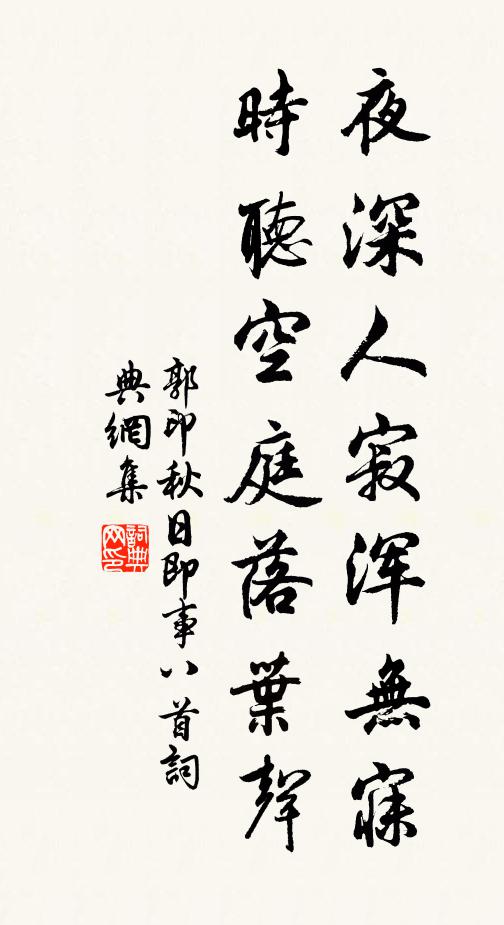 夜深人寂浑無寐
時聽空庭落葉聲
郭印秋日即事八首詞
典網集
詞典网印